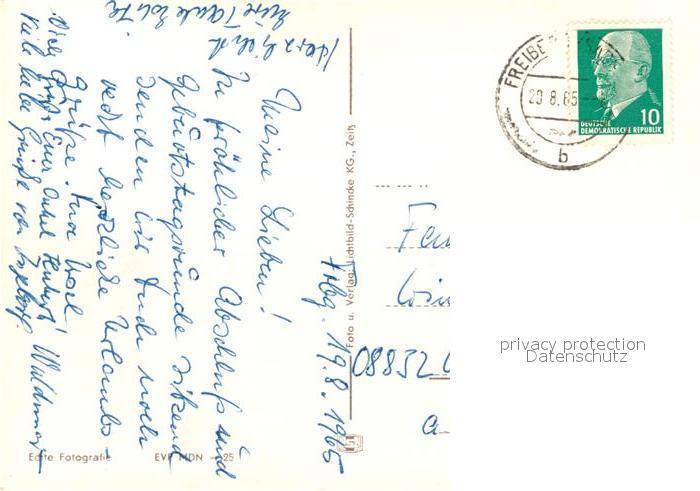 Frbg. 19.8.1965
Meine Lieben!
In fröhlicher Abschluß und
Geburtstagsrunde sitzend
senden wir Euch noch
recht herzliche Urlaubs-
Grüße. Eure
Viele Grüße Euer Onkel Herbert!
Viele liebe Grüße von
Waldemar
Herzlichst
Eure Tante
Foto u. Verlag Lichtbild-Schincke KG., Zeitz
Echte Fotografie
EVP MDN —,25
FREIBE
20.8.65
b
DEUTSCHE
DEMOKRATISCHE REPUBLIK
10
08832
a
privacy protection
Datenschutz